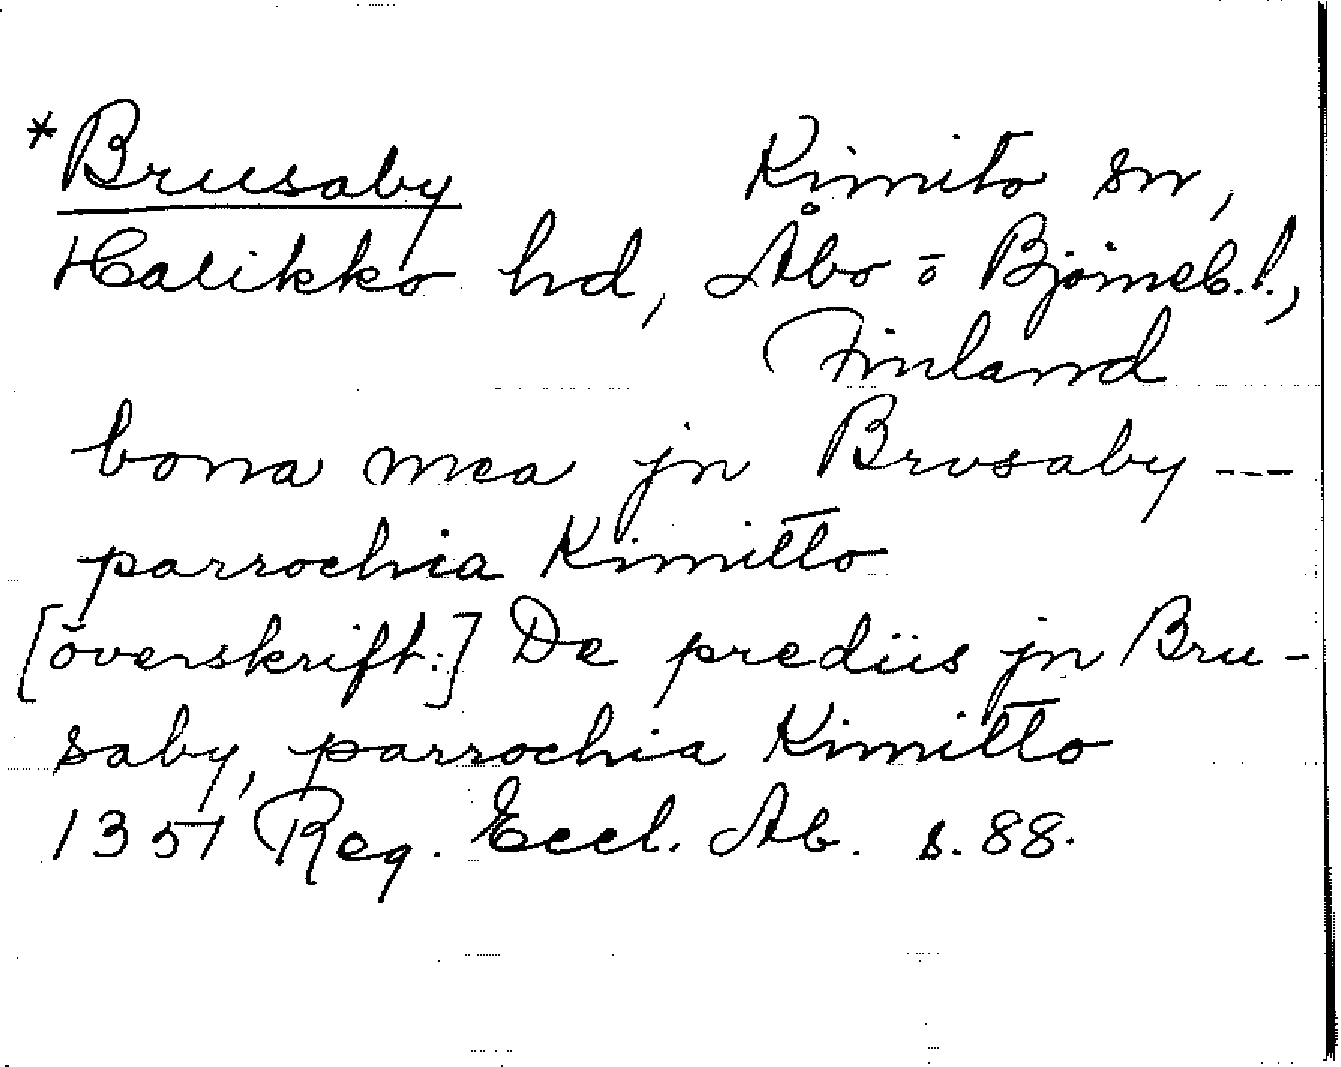 *Brusaby Kimito sn,
Halikko hd, Åbo o Björneb. l.,
Finland
bona mea jn Brvsaby ---
parrochia Kimitto
[överskrift:] De prediis jn Bru-
saby, parrochia Kimitto
1357 Reg. Eccl. Ab. s. 88.